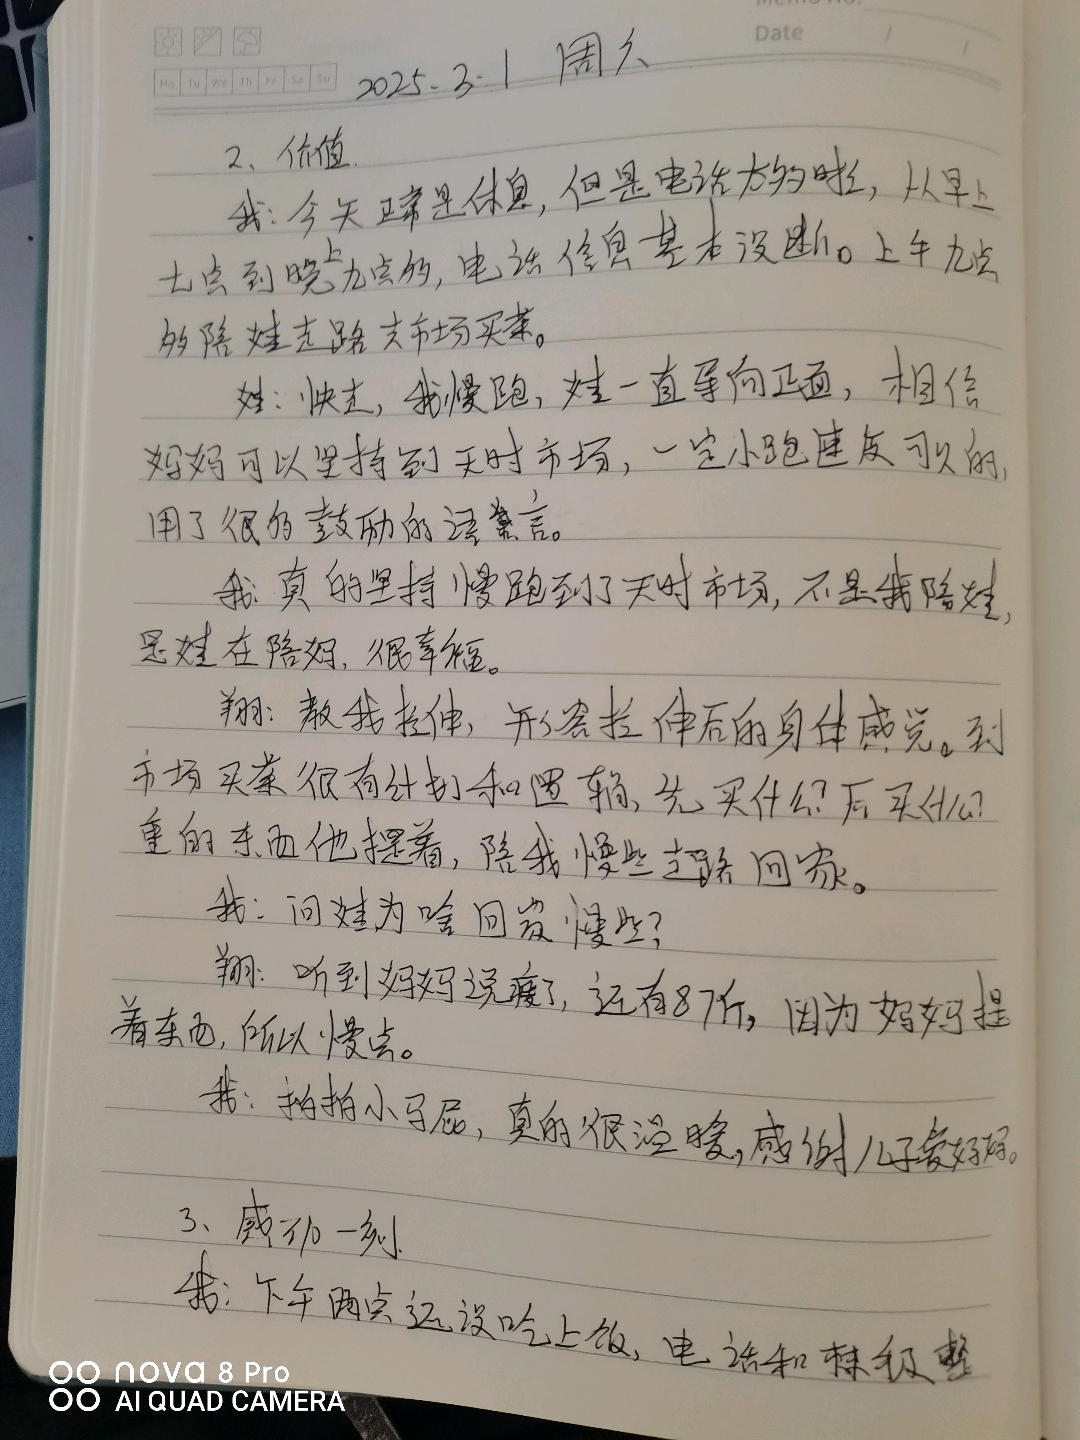 Memo No.
Date / /
Mo Tu We Th Fr Sa Su
2025.3.1 周六
2、价值.
我:今天正常是休息,但是电话太多的时候,从早上
七点到晚上九点多,电话信息基本没断。上午九点
多陪娃走路去市场买菜。
娃:快走,我慢跑,娃一直导向正面,相信
妈妈可以坚持到天时市场,一定小跑速度可以的,
用了很多鼓励的语言。
我:真的坚持慢跑到了天时市场,不是我陪娃,
是娃在陪妈,很幸福。
翔:教我拉伸,形容拉伸后的身体感觉。到
市场买菜很有计划和逻辑,先买什么?后买什么?
重的东西他提着,陪我慢些走路回家。
我:问娃为啥回家慢些?
翔:听到妈妈说瘦了,还有87斤,因为妈妈提
着东西,所以慢点。
我:拍拍小马屁,真的很温暖,感谢儿子爱妈妈。
3、感动一刻
我:下午两点还没吃上饭,电话和
nova 8 Pro
AI QUAD CAMERA